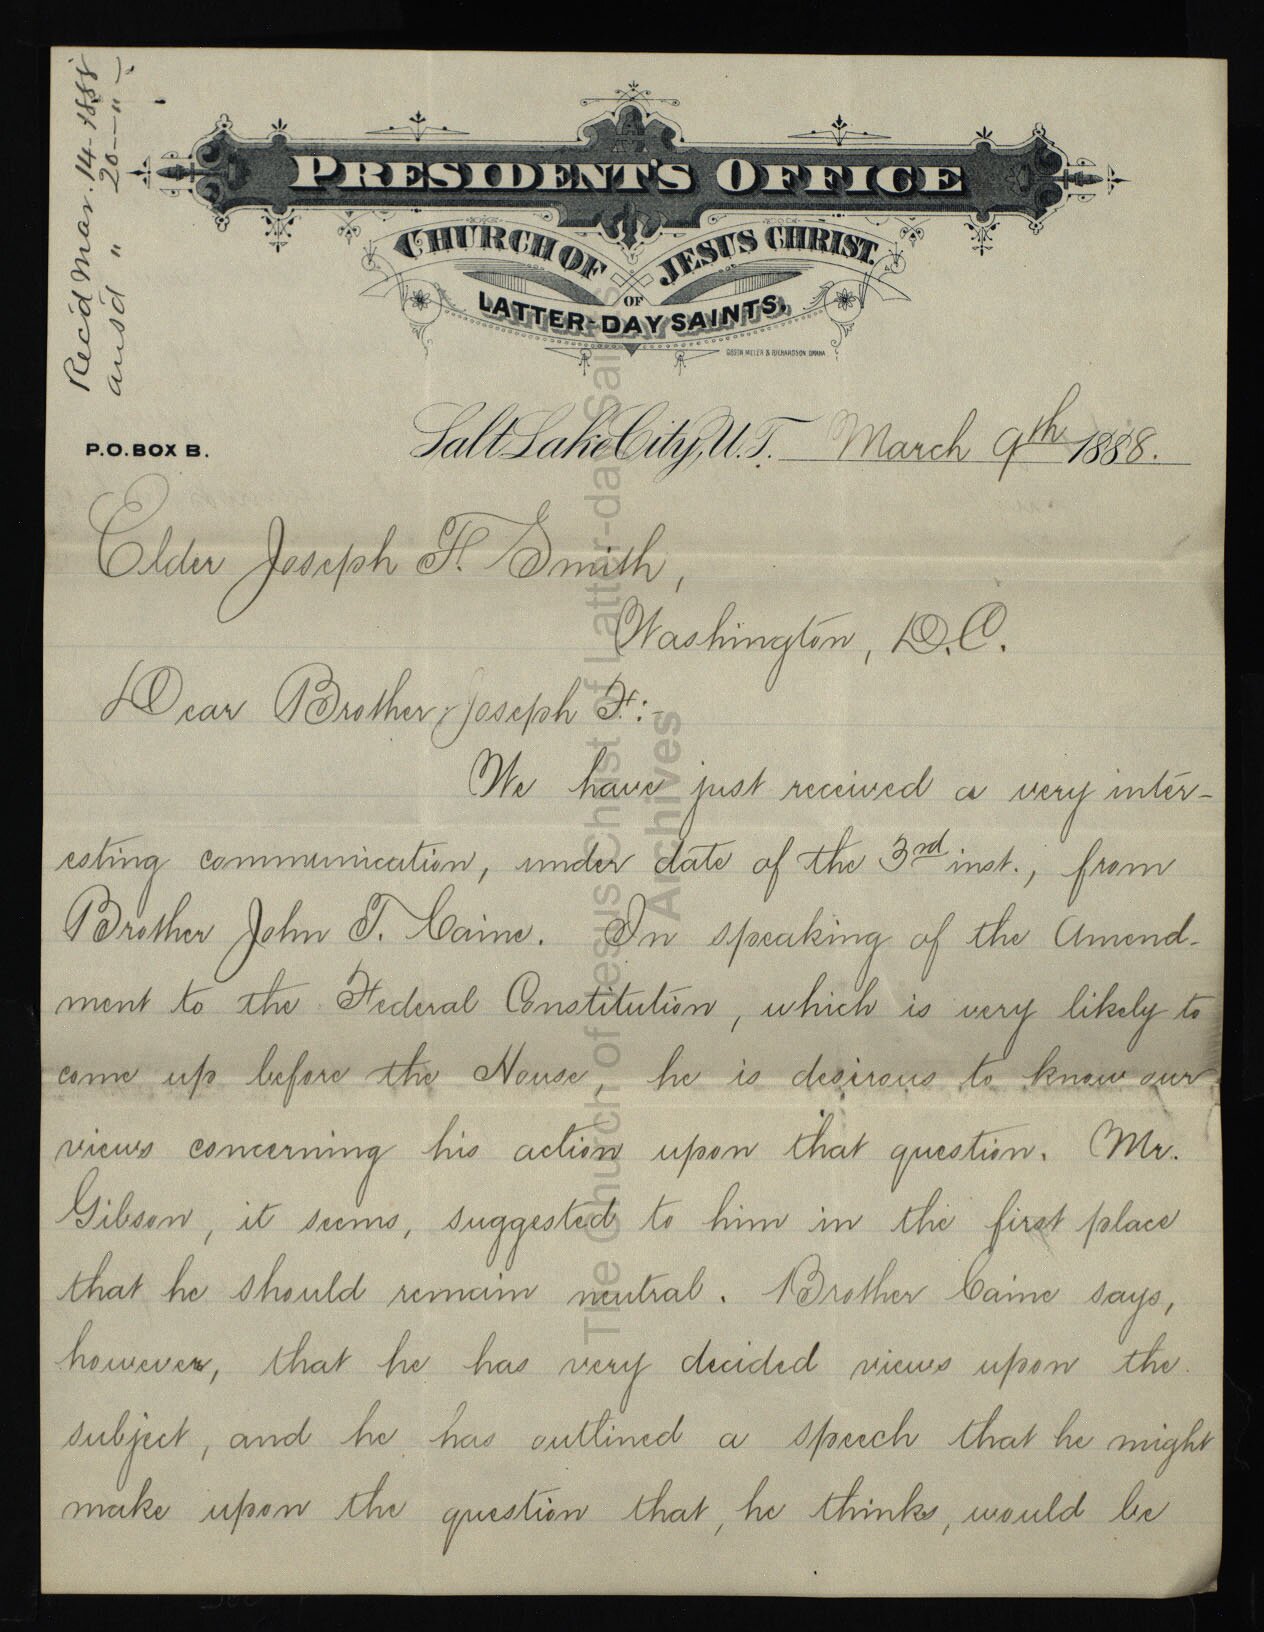 Rec'd Mar. 14-1888
ans'd " 20 — " —
PRESIDENT'S OFFICE
CHURCH OF JESUS CHRIST
OF
LATTER-DAY SAINTS.
P.O. BOX B.
Salt Lake City, U.T. March 9th 1888.
Elder Joseph F. Smith,
Washington, D.C.
Dear Brother Joseph F.:-
We have just received a very inter-
esting communication, under date of the 3rd inst., from
Brother John T. Caine. In speaking of the Amend-
ment to the Federal Constitution, which is very likely to
come up before the House, he is desirous to know our
views concerning his action upon that question. Mr.
Gibson, it seems, suggested to him in the first place
that he should remain neutral. Brother Caine says,
however, that he has very decided views upon the
subject, and he has outlined a speech that he might
make upon the question that, he thinks, would be
The Church of Jesus Christ of Latter-day Saints
Archives